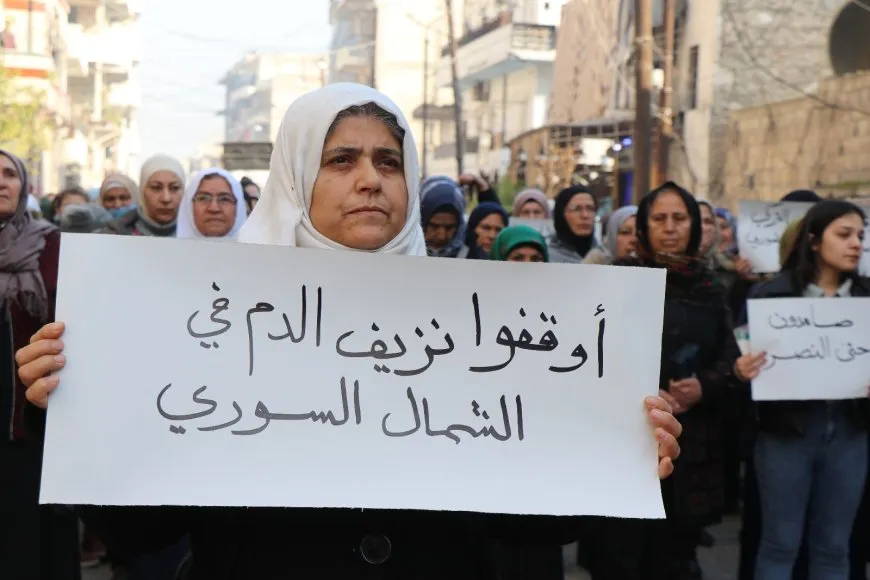 أوقفوا نزيف الدم في
الشمال السوري
صامدون
حتى النصر